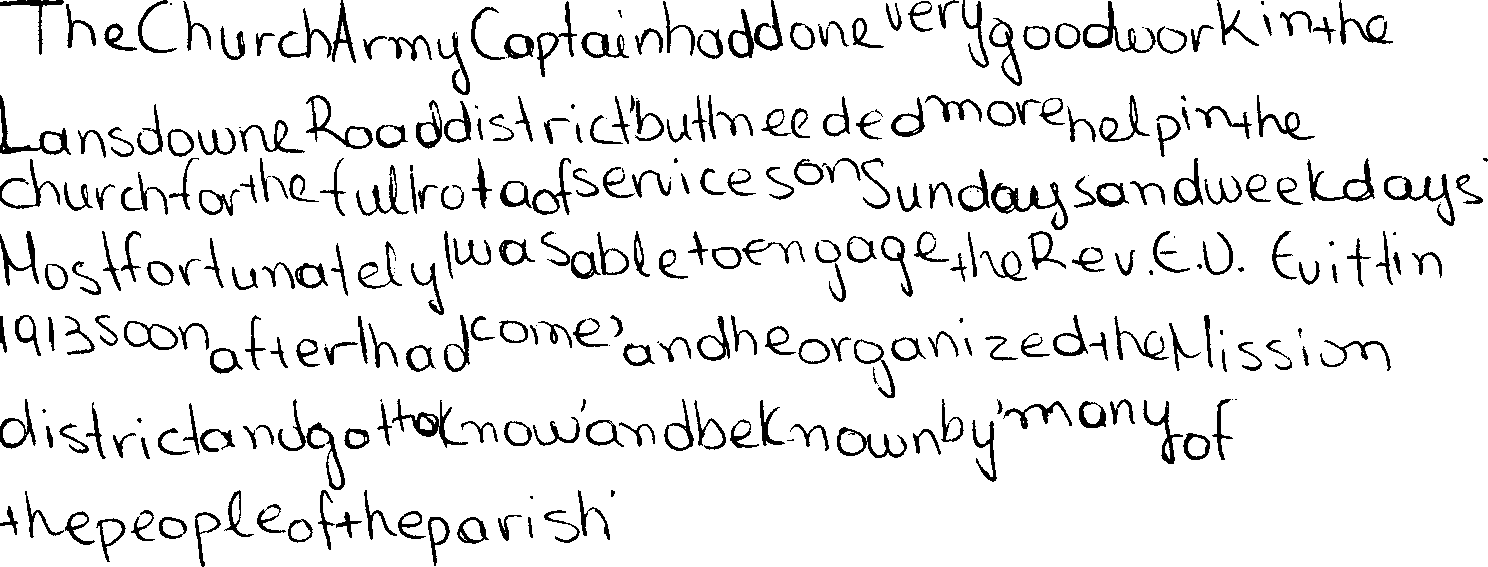 The Church Army Captain had done very good work in the
Lansdowne Road district' but I needed more help in the
church for the full rota of services on Sundays and weekdays'
Most fortunately I was able to engage the Rev. E.V. Evitt in
1913 soon after I had come' and he organized the Mission
district and got to know' and be known by' many of
the people of the parish'